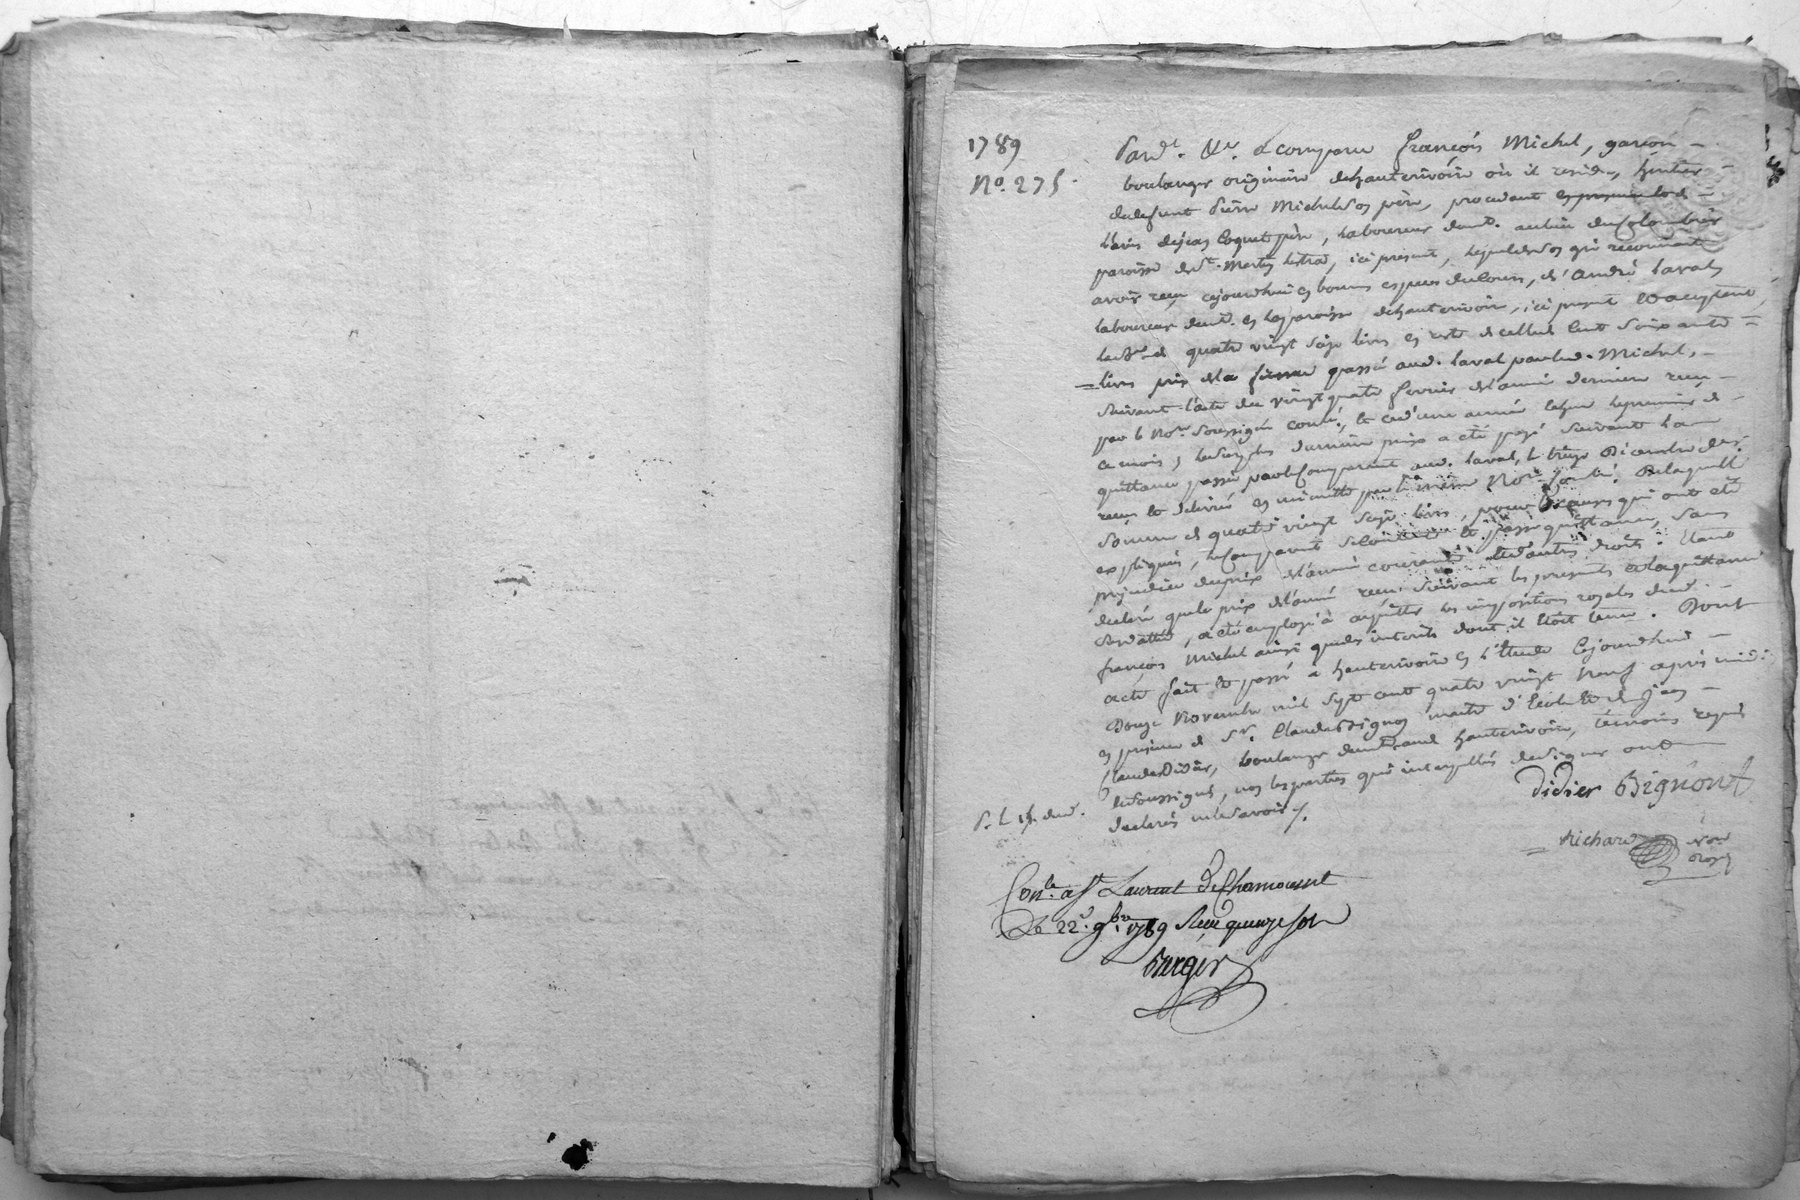 1789
N.º 275.
Pard.t &c. a comparu françois Michel, garçon
boulanger originaire de hauterivoire où il reside, heritier
de defunt pierre Michel son père, procedant
l'avis de jean Coquet père, laboureur demt. au lieu du Colombier
paroisse de St. Martin Lestra, ici present, lequel de son gré reconnait
avoir reçu cejourdhui en bonnes especes de Cours, d'André laval
laboureur demt. en la paroisse de hauterivoire, ici present et acceptant,
la somme de quatre vingt seize livres en reste de celle de Cent soixante
livres prix de la ferme passé aud. laval par led. Michel,
suivant l'acte du vingt quatre fevrier de l'année derniere reçu
par le Nore. soussigné Conlé., et ce d'une année echue le premier de
ce mois, le surplus dernier prix a été payé suivant la
quittance passée par le Comparant aud. laval, le treize Decembre der.
reçu et delivré en minutte par le même Nore. Conlé. De laquelle
somme de quatre vingt seize livres, pour les causes qui ont été
expliquées, le Comparant se contente et passe quittance, sans
prejudice du prix de l'année courante et d'autres droits. etant
declaré que le prix de l'année reçu suivant les presentes et la quittance
a été employé à acquitter les impositions royales dud.
françois Michel ainsi que les interets dont il étoit tenu. Dont
acte fait et passé a hauterivoire en l'étude Cejourdhui
Douze Novembre mil sept cent quatre vingt Neuf après midi
en presence de Sr. Claude Bignon maitre d'Ecole et de jean
Claude Didier, boulanger demt. aud. hauterivoire, témoins requis
et soussignés, non les parties qui interpellées de signer ont
declarés ne le savoir /.
didier Bignont
Richard Nore.
royal
P. L. 15s. dud.
Con.le a St Laurent de Chamousset
Le 22.e 9.bre 1789 Reçu quinze sols
Berger